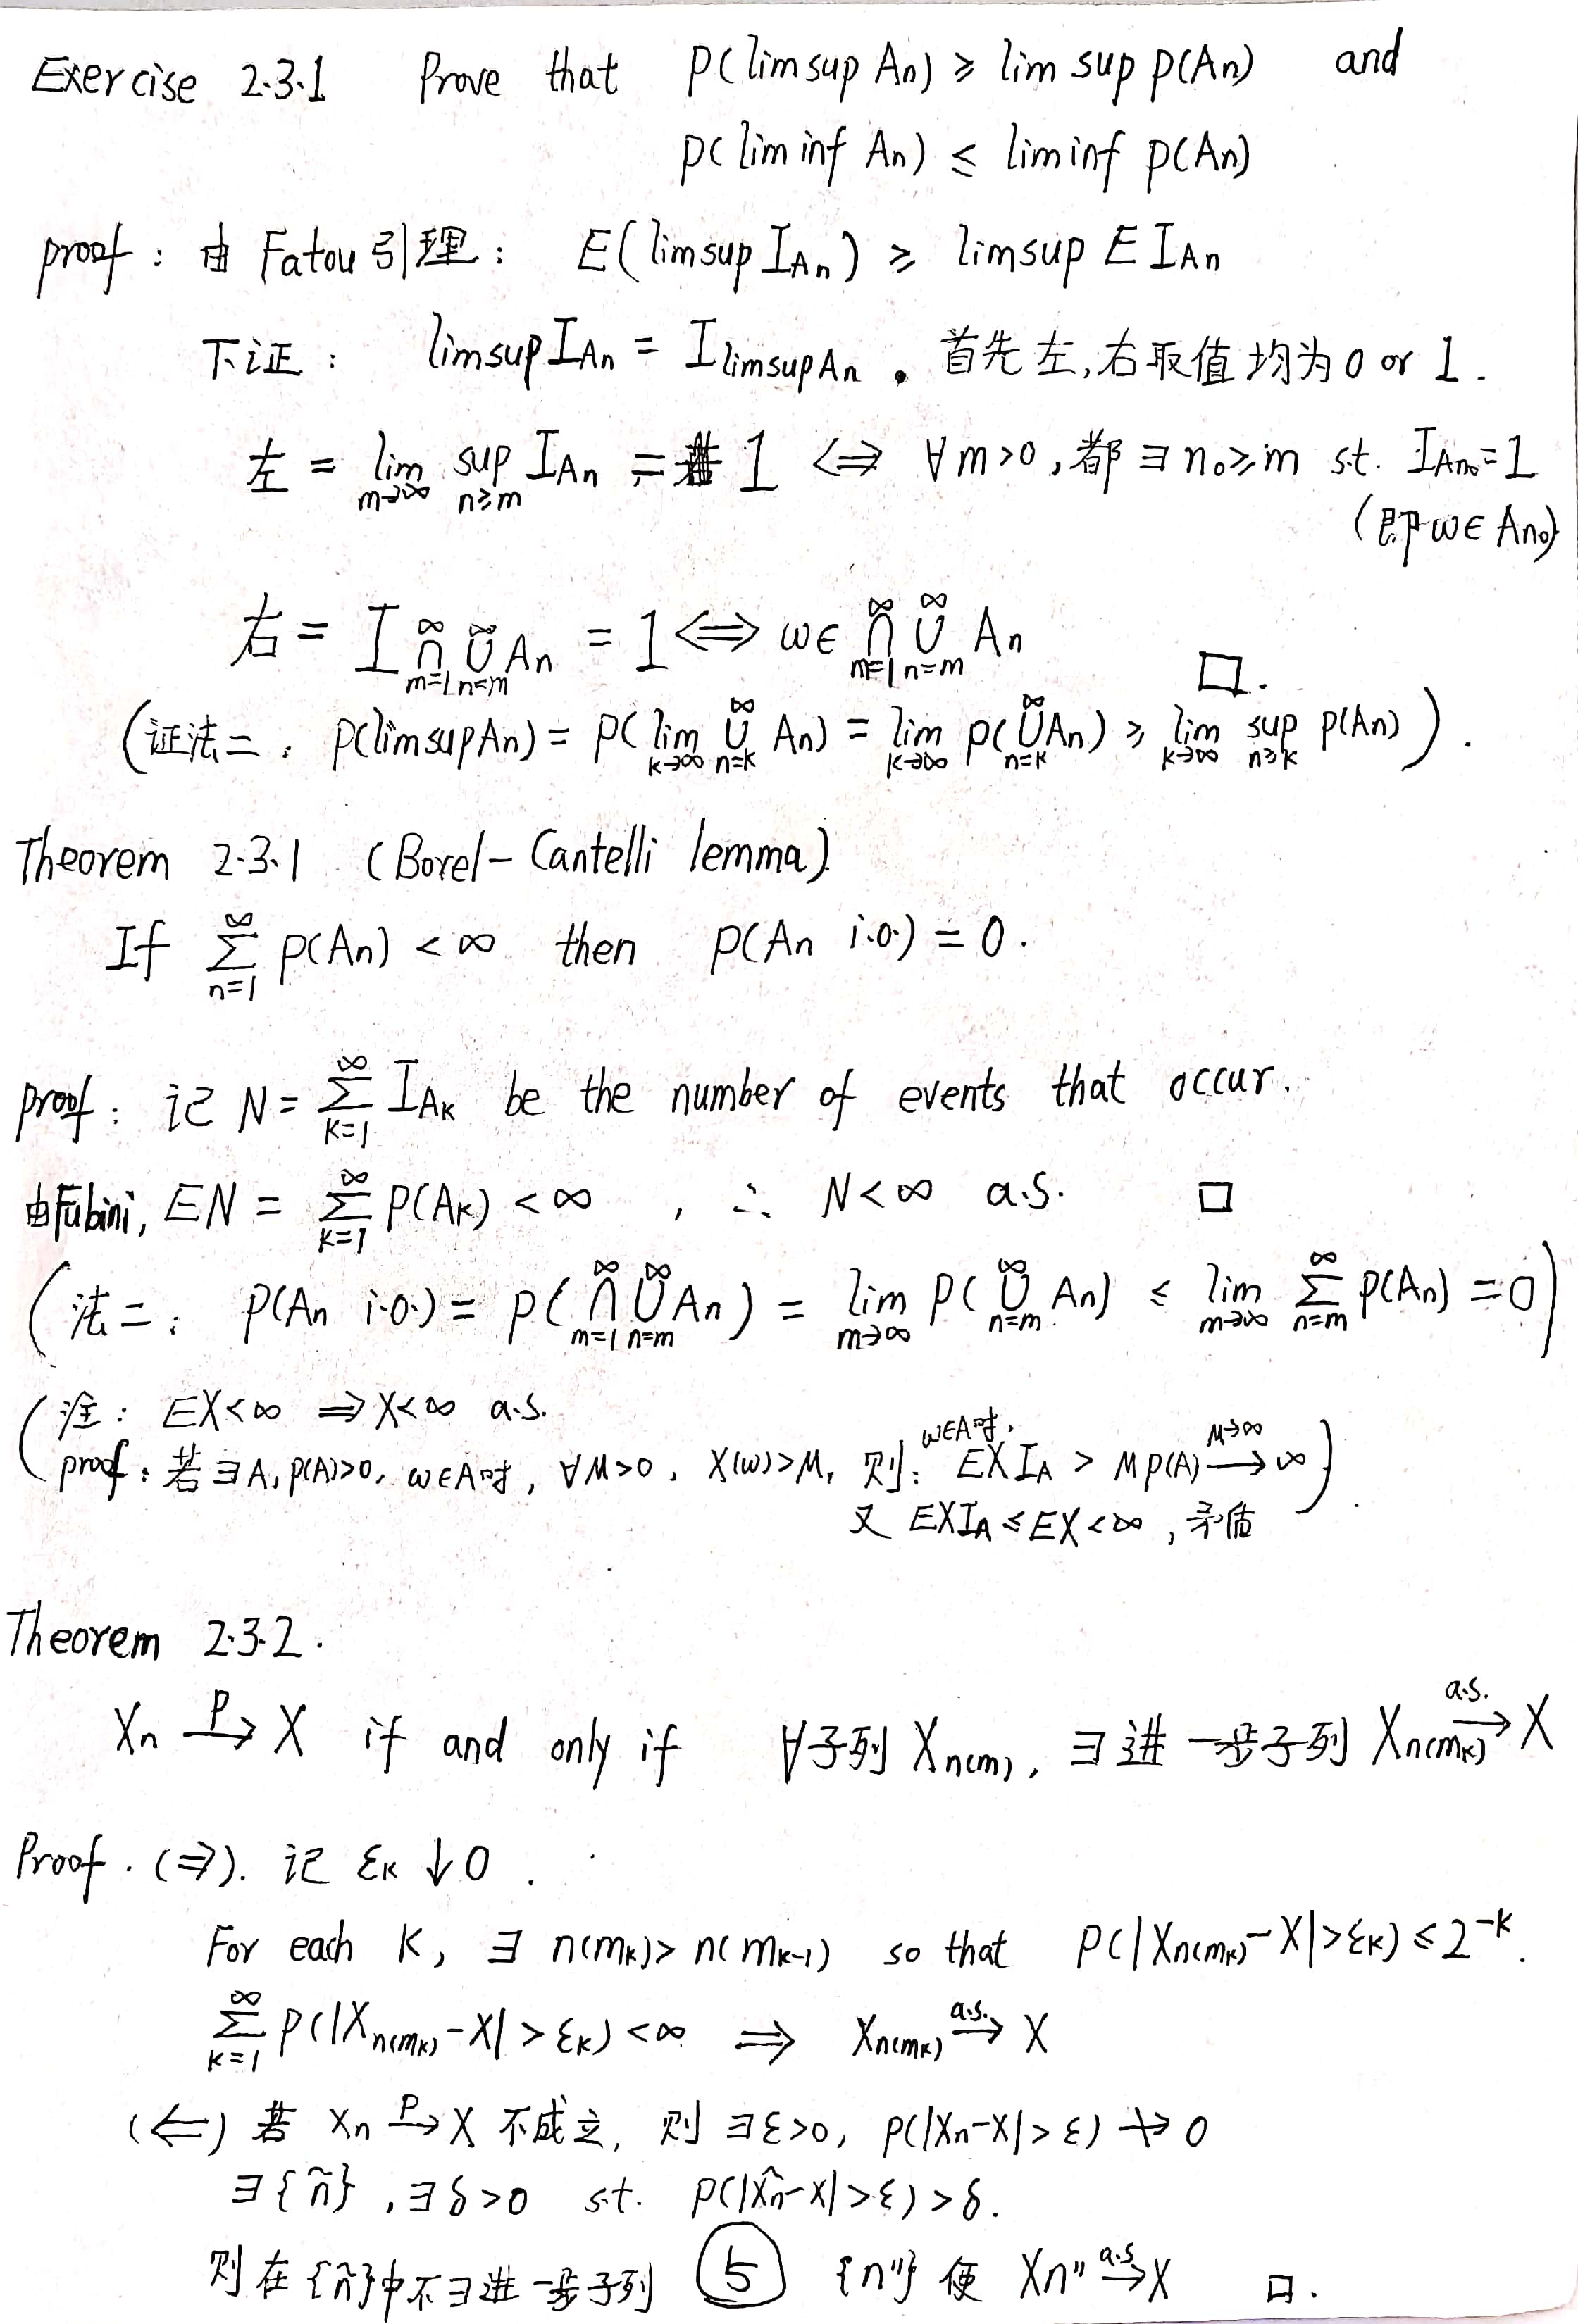 Exercise 2.3.1 Prove that P(limsup An) ≥ lim sup P(An) and
P(lim inf An) ≤ liminf P(An)
proof : 由 Fatou 引理 : E(limsup I_{An}) ≥ limsup E I_{An}
下证 : limsup I_{An} = I_{limsup An} . 首先左,右取值均为 0 or 1 .
左 = lim_{m→∞} sup_{n≥m} I_{An} = 1 ⇔ ∀m>0 , 都 ∃ n₀≥m s.t. I_{An₀}=1
(即 ω∈ An₀)
右 = I_{∩_{m=1}^∞ ∪_{n=m}^∞ An} = 1 ⇔ ω∈ ∩_{m=1}^∞ ∪_{n=m}^∞ An □.
(证法二 : P(limsup An) = P( lim_{k→∞} ∪_{n=k}^∞ An) = lim_{k→∞} P(∪_{n=k}^∞ An) ≥ lim_{k→∞} sup_{n≥k} P(An) ) .
Theorem 2.3.1 (Borel-Cantelli lemma)
If ∑_{n=1}^∞ P(An) < ∞ then P(An i.o.) = 0 .
proof : 记 N = ∑_{k=1}^∞ I_{Ak} be the number of events that occur.
由Fubini, EN = ∑_{k=1}^∞ P(Ak) < ∞ , ∴ N<∞ a.s. □
(法二 : P(An i.o.) = P( ∩_{m=1}^∞ ∪_{n=m}^∞ An ) = lim_{m→∞} P( ∪_{n=m}^∞ An) ≤ lim_{m→∞} ∑_{n=m}^∞ P(An) = 0)
(注 : EX<∞ ⇒ X<∞ a.s.
proof : 若 ∃A, P(A)>0, ω∈A时, ∀M>0 , X(ω)>M, 则: ω∈A时, EXI_A > MP(A) →^{M→∞} ∞
又 EXI_A ≤ EX < ∞ , 矛盾 ) .
Theorem 2.3.2 .
Xn →^P X if and only if ∀子列 X_{n(m)} , ∃ 进一步子列 X_{n(m_k)} →^{a.s.} X
Proof . (⇒). 记 ε_k ↓ 0 .
For each k, ∃ n(m_k) > n(m_{k-1}) so that P(|X_{n(m_k)} - X| > ε_k) ≤ 2^{-k} .
∑_{k=1}^∞ P(|X_{n(m_k)} - X| > ε_k) < ∞ ⇒ X_{n(m_k)} →^{a.s.} X
(⇐) 若 Xn →^P X 不成立, 则 ∃ε>0, P(|Xn-X| > ε) ↛ 0
∃{ñ} , ∃δ>0 s.t. P(|X_ñ-X| > ε) > δ.
则在{ñ}中不∃进一步子列 ⑤ {n''} 使 Xn'' →^{a.s.} X □.